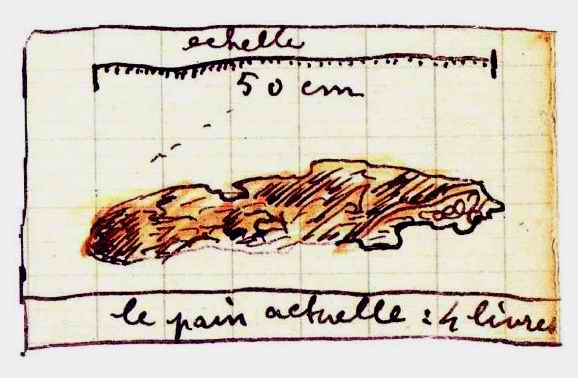 echelle
50 cm
le pain actuelle : 4 livres